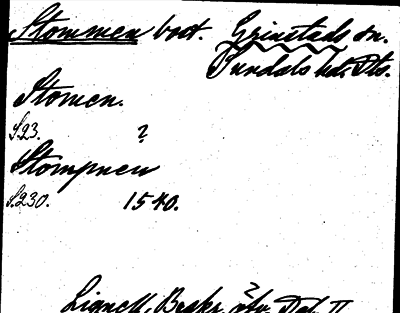 Stommen bost. Grinstads sn.
Sundals hd, Dls.
Stomen.
S.23. ?
Stompnen
S.230. 1540.
Lignell, Beskr. Del. II